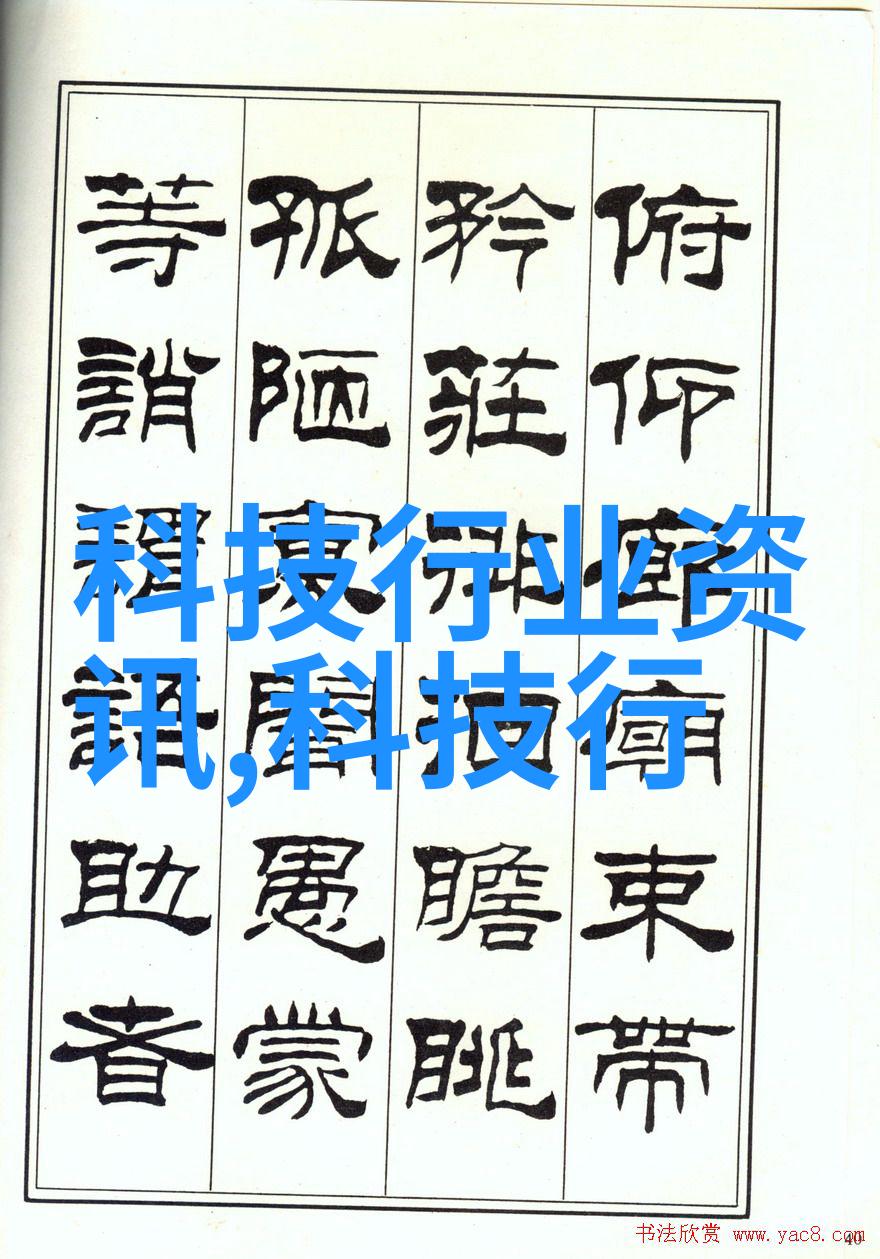 俯仰廊廟束帶
矜莊徘徊瞻眺
孤陋寡聞愚蒙
等誚謂語助者
科技行业资
讯,科技行
书法欣赏 www.yac8.com
40